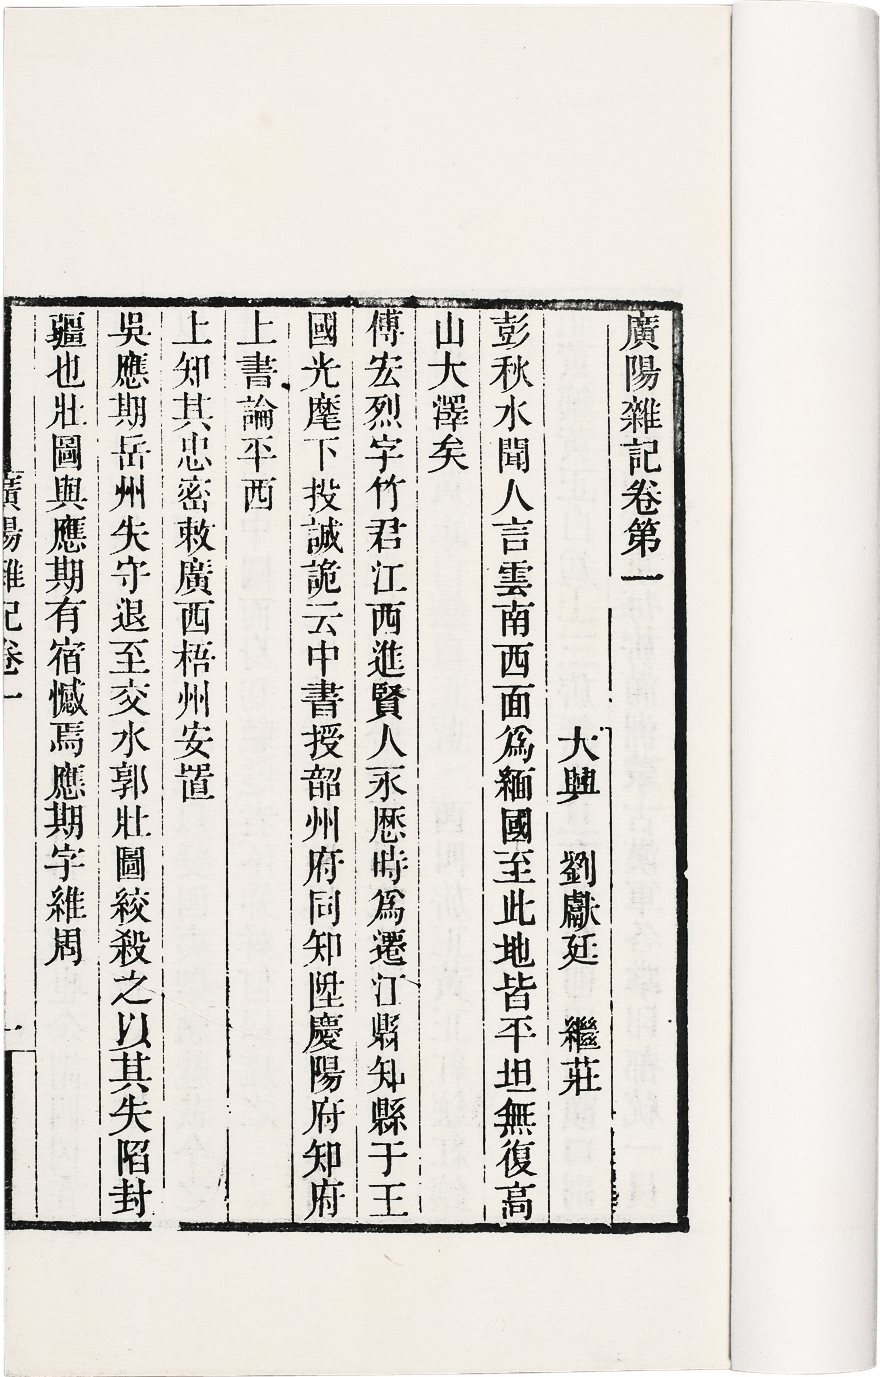 廣陽雜記卷第一
大興 劉獻廷 繼莊
彭秋水聞人言雲南西面爲緬國至此地皆平坦無復高
山大澤矣
傅宏烈字竹君江西進賢人永歷時爲遷江縣知縣于王
國光麾下投誠詭云中書授韶州府同知陞慶陽府知府
上書論平西
上知其忠密敕廣西梧州安置
吳應期岳州失守退至交水郭壯圖絞殺之以其失陷封
疆也壯圖與應期有宿憾焉應期字維周
廣陽雜記卷一
一